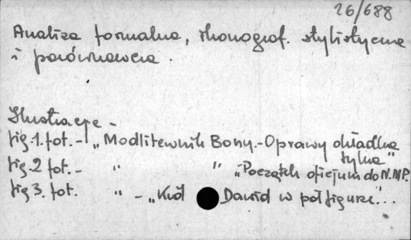 26/688
Analiza formalna, ikonograf. stylistyczna
i porównawcza.
Ilustracje -
fig. 1. fot. - „Modlitewnik Bony. - Oprawy okładka
tylna"
fig. 2 fot. - „ „ „Początek oficjum do N.M.P.
fig 3. fot. „ - „Król Dawid w półfigurze"..